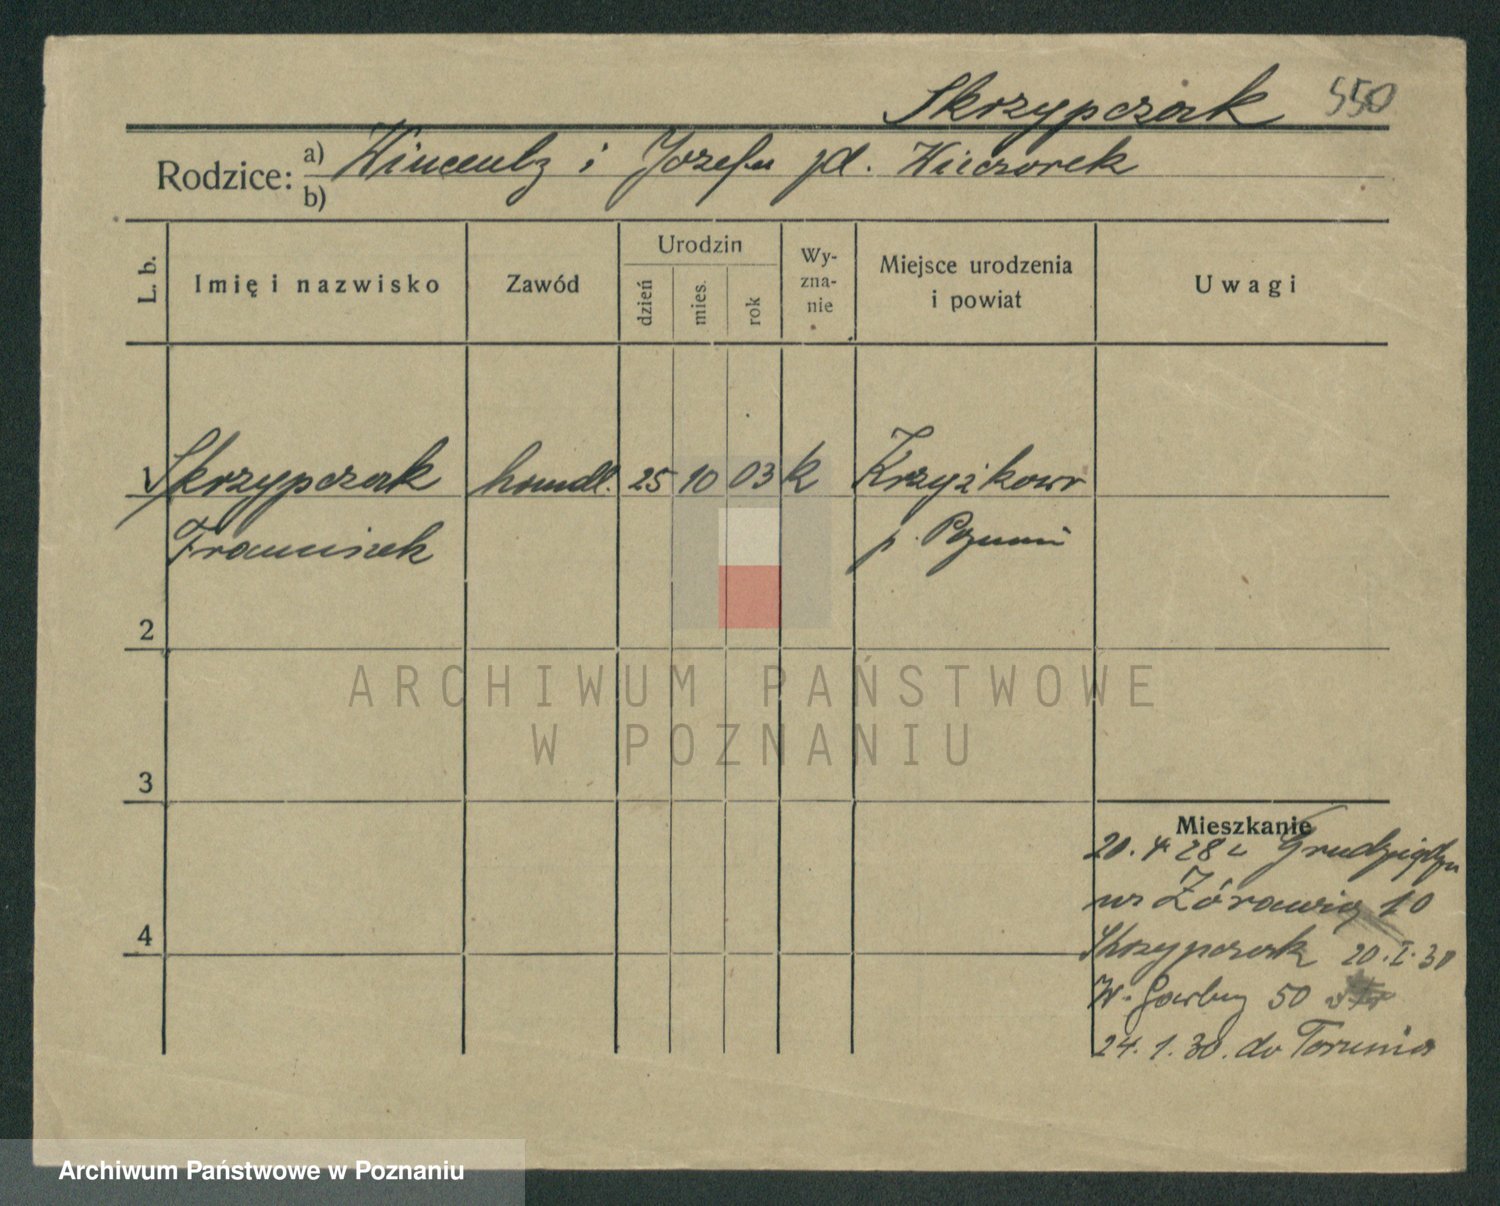 Skrzypczak 550
Rodzice: a) Wincenty i Józefa zd. Wieczorek
b)
L. b. Imię i nazwisko Zawód Urodzin dzień mies. rok Wy-zna-nie Miejsce urodzenia i powiat Uwagi
1 Skrzypczak handl. 25 10 03 k Krzyżkowo
Franciszek p. Poznań
2
3
4
Mieszkanie
20. 4 28 z Grudziądza
na Żórawią 10
Skrzypczak 20. I. 30
W. Garbary 50
24. 1. 30. do Torunia
ARCHIWUM PAŃSTWOWE
W POZNANIU
Archiwum Państwowe w Poznaniu